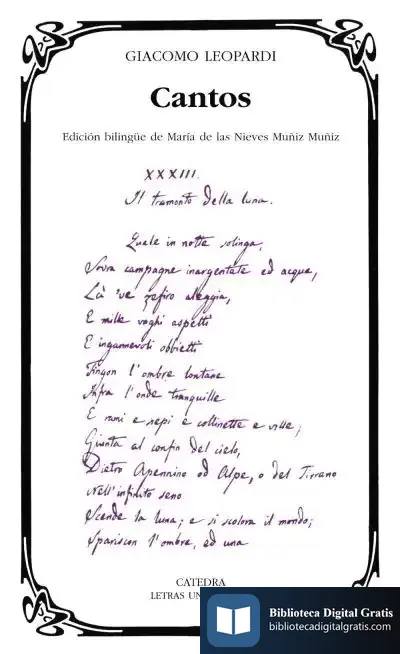 GIACOMO LEOPARDI
Cantos
Edición bilingüe de María de las Nieves Muñiz Muñiz
XXXIII.
Il tramonto della luna.
Quale in notte solinga,
Sovra campagne inargentate ed acque,
Là 've zefiro aleggia,
E mille vaghi aspetti
E ingannevoli obbietti
Fingon l'ombre lontane
Infra l'onde tranquille
E rami e siepi e collinette e ville;
Giunta al confin del cielo,
Dietro Apennino od Alpe, o del Tirreno
Nell'infinito seno
Scende la luna; e si scolora il mondo;
Spariscon l'ombre, ed una
CATEDRA
LETRAS UN
Biblioteca Digital Gratis
bibliotecadigitalgratis.com